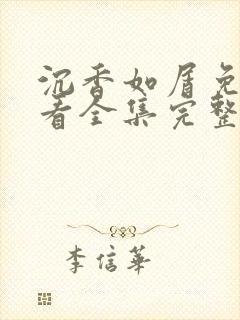 沉香如屑免
看全集完整
李信華